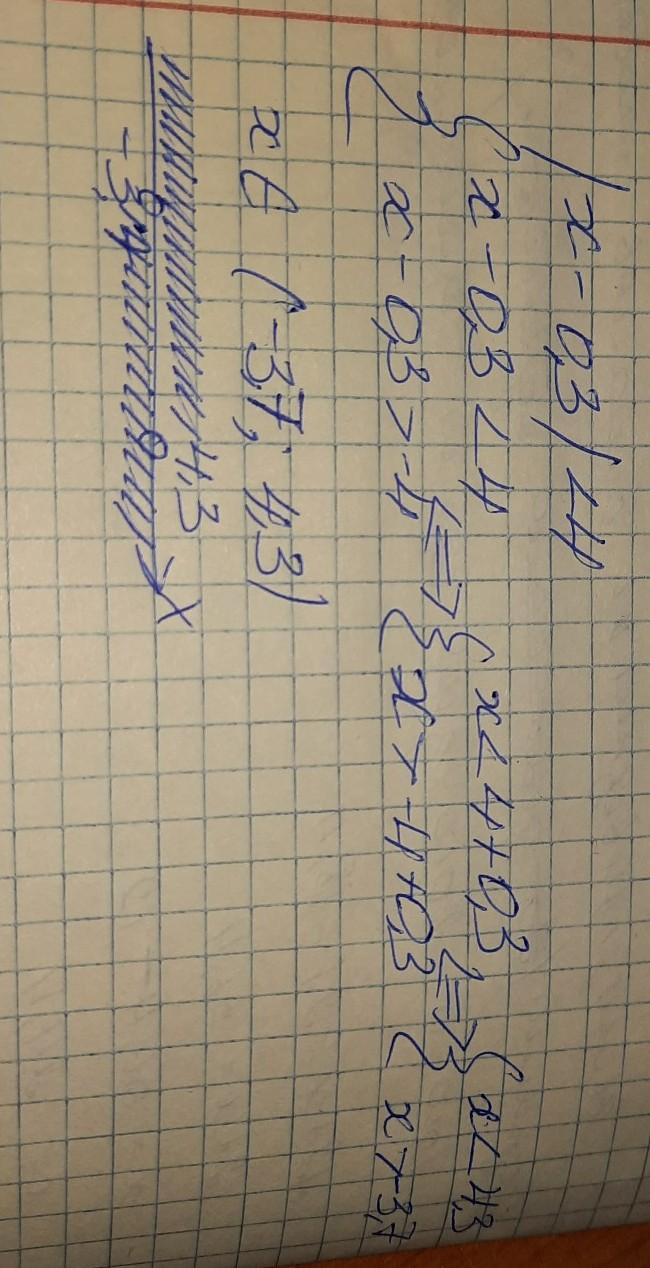 |x - 0,3| < 4
{ x - 0,3 < 4 <=> { x < 4 + 0,3 <=> { x < 4,3
{ x - 0,3 > -4 { x > -4 + 0,3 { x > -3,7
x ∈ (-3,7; 4,3)
-3,7 4,3 x